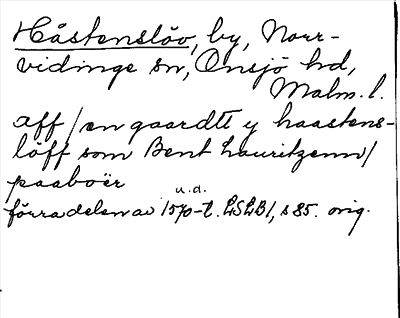 Håstenslöv, by, Norr-
vidinge sn, Onsjö hd,
Malm. l.
aff / en gaardtt y haastens-
löff som Bent Lauritzenn /
paaboër
u.d.
förra delen av 1570-t. LSLB1, s 85. orig.